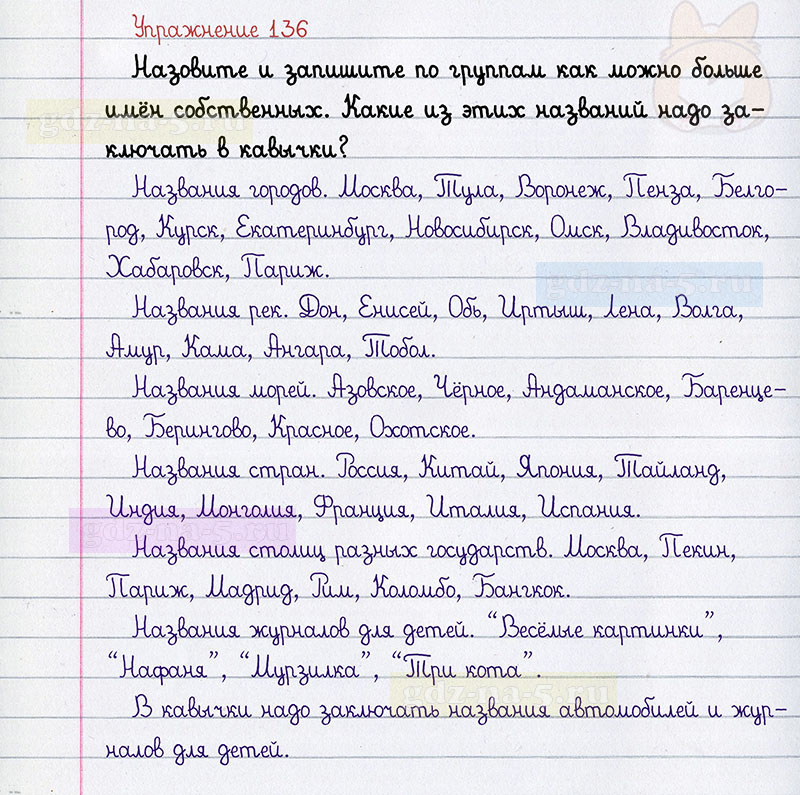 Упражнение 136
Назовите и запишите по группам как можно больше
имён собственных. Какие из этих названий надо за-
ключать в кавычки?
Названия городов. Москва, Тула, Воронеж, Пенза, Белго-
род, Курск, Екатеринбург, Новосибирск, Омск, Владивосток,
Хабаровск, Париж.
gdz-na-5.ru
gdz-na-5.ru
Названия рек. Дон, Енисей, Обь, Иртыш, Лена, Волга,
Амур, Кама, Ангара, Тобол.
Названия морей. Азовское, Чёрное, Андаманское, Баренце-
во, Берингово, Красное, Охотское.
Названия стран. Россия, Китай, Япония, Тайланд,
Индия, Монголия, Франция, Италия, Испания.
gdz-na-5.ru
Названия столиц разных государств. Москва, Пекин,
Париж, Мадрид, Рим, Коломбо, Бангкок.
Названия журналов для детей. “Весёлые картинки”,
“Нафаня”, “Мурзилка”, “Три кота”.
gdz-na-5.ru
В кавычки надо заключать названия автомобилей и жур-
налов для детей.